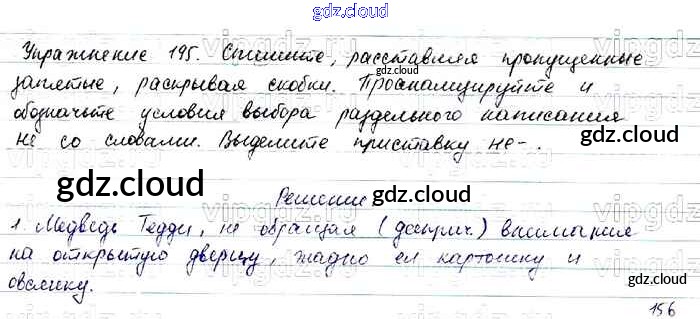 gdz.cloud
Упражнение 195. Спишите, расставляя пропущенные
gdz.cloud
запятые, раскрывая скобки. Проанализируйте и
обозначьте условия выбора раздельного написания
gdz.cloud
не со словами. Выделите приставку не-.
gdz.cloud
Решение gdz.cloud
1. Медведь Тедди, не обращая (дееприч.) внимания
на открытую дверцу, жадно ел картошку и
gdz.cloud
овсянку.
156